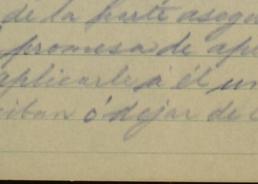 de la parte asegu
promesa de ap
aplicarle á él un
iban ó dejar de